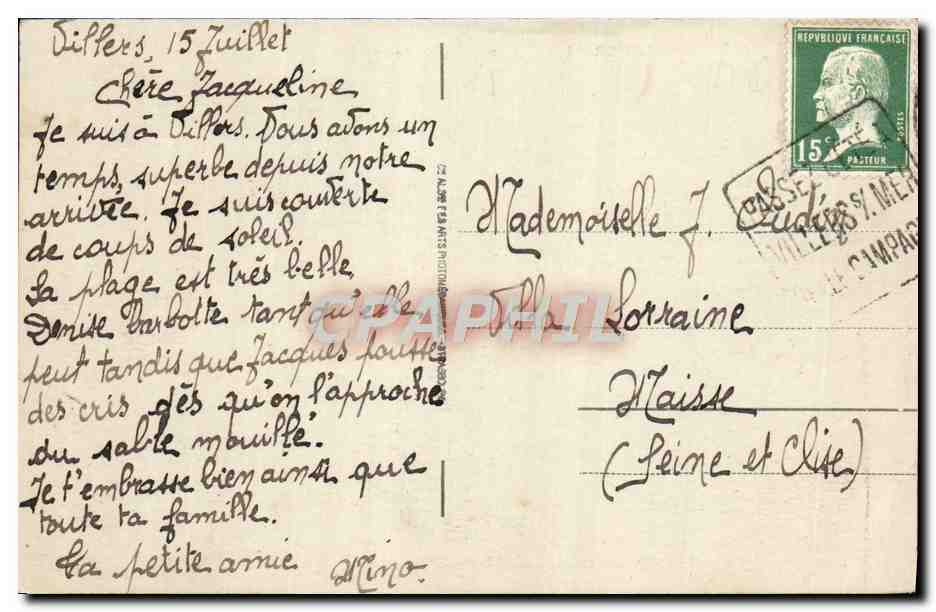 Villers, 15 Juillet
Chère Jacqueline
Je suis à Villers. Nous avons un
temps, superbe depuis notre
arrivée. Je suis couverte
de coups de soleil.
La plage est très belle
Denise barbotte tant qu'elle
peut tandis que Jacques pousse
des cris dès qu'on l'approche
du sable mouillé.
Je t'embrasse bien ainsi que
toute ta famille.
Ta petite amie Mino.
REPUBLIQUE FRANÇAISE
15c
POSTES
PASTEUR
PASSEZ
VILLERS S/. MER
LA CAMPAG
Mademoiselle J.
Villa Lorraine
Maisse
(Seine et Oise)
CPAPHIL